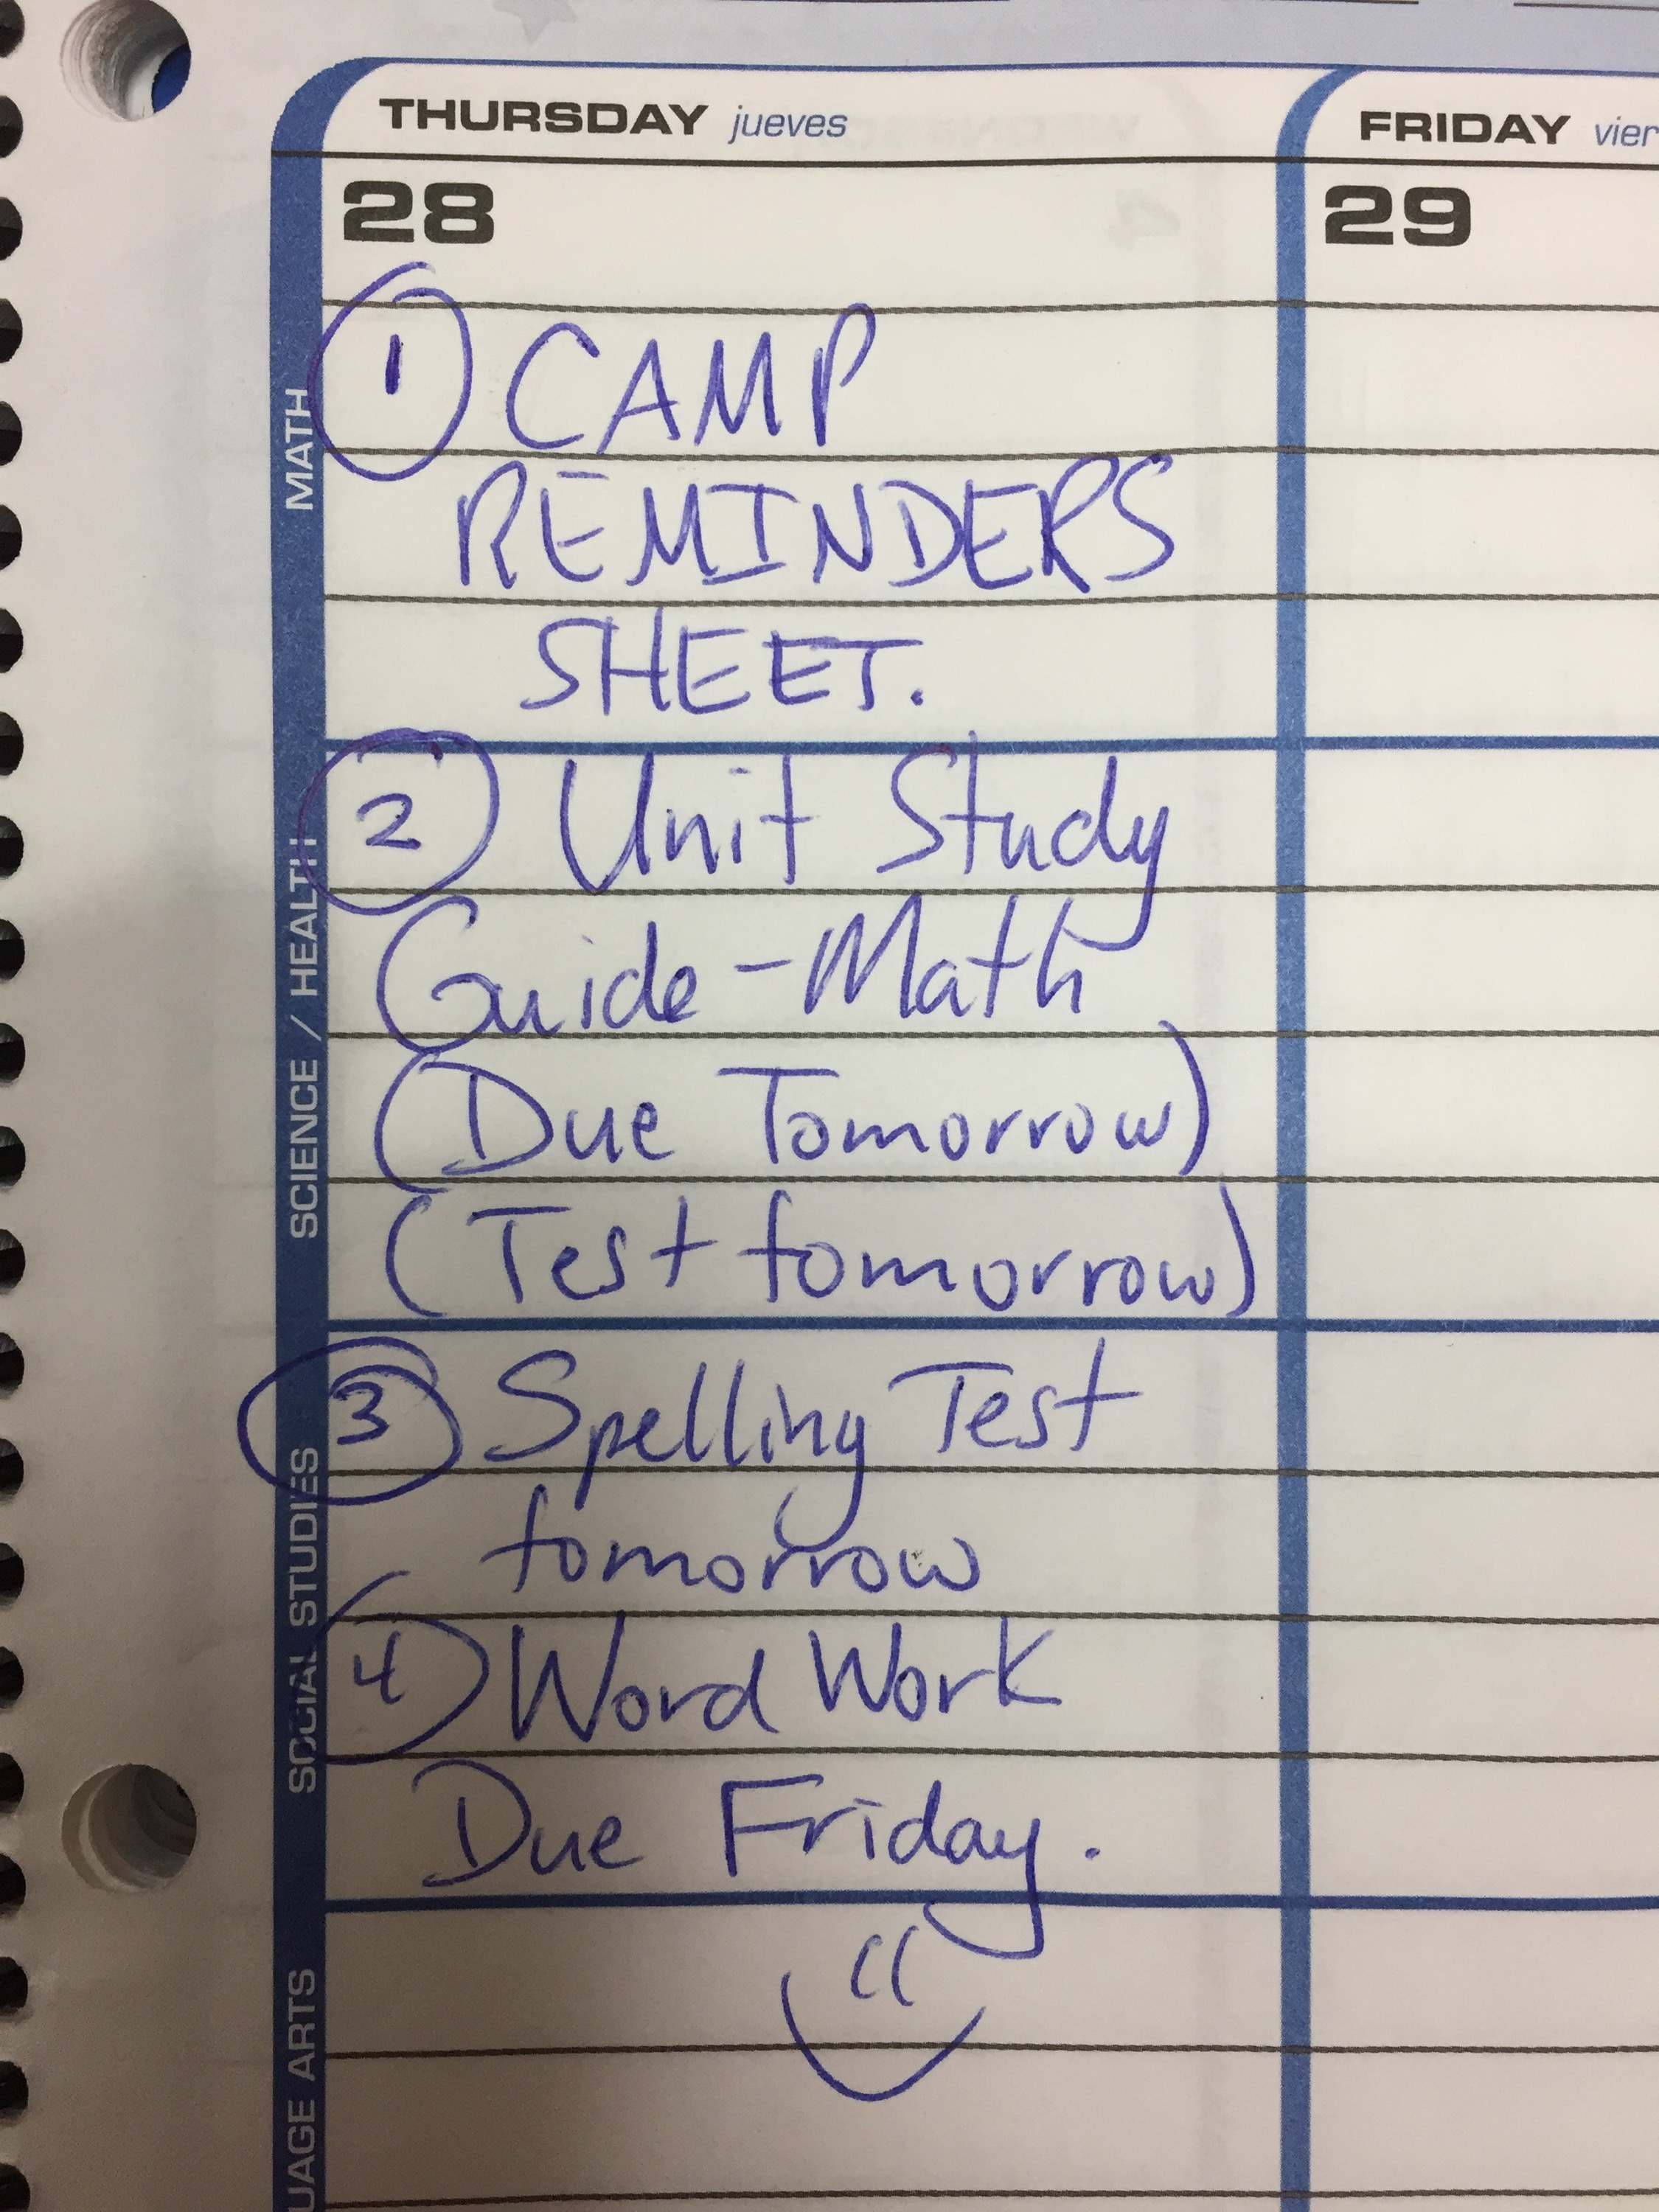 THURSDAY jueves
FRIDAY vier
28
29
1 CAMP
REMINDERS
SHEET.
2 Unit Study
Guide - Math
(Due Tomorrow)
(Test tomorrow)
3 Spelling Test
tomorrow
4 Word Work
Due Friday.
MATH
SCIENCE / HEALTH
SOCIAL STUDIES
UAGE ARTS